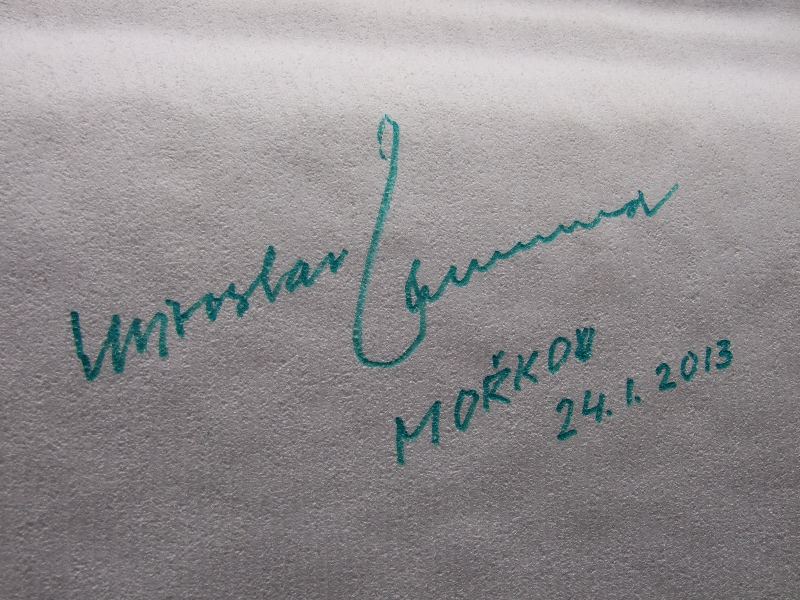 Miroslav
MOŘKOV
24.1.2013